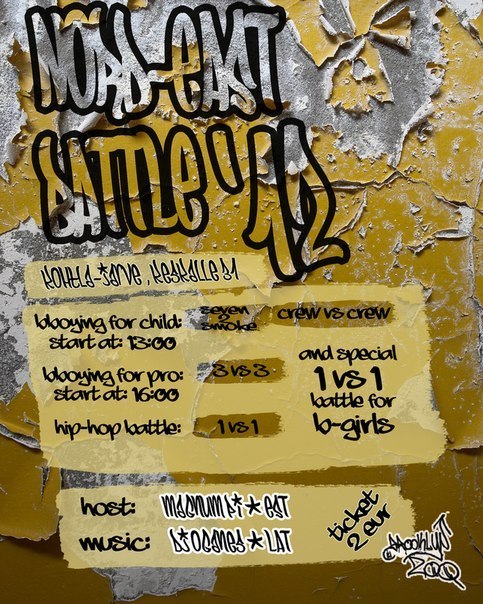 NORD-EAST
BATTLE '12
KOHTLA-JARVE, KESKALLE 31
bboying for child: seven 2 smoke crew vs crew
start at: 13:00
bboying for pro: 3 vs 3
start at: 16:00
hip-hop battle: 1 vs 1
and special
1 vs 1
battle for
b-girls
host: MAGNUM P.I ★ EST
music:
★ LAT
ticket
2 eur
BROOKLYN